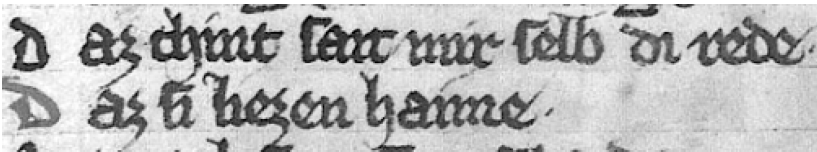 D az chint sait mir selb di rede.
D az si hiezen haime.